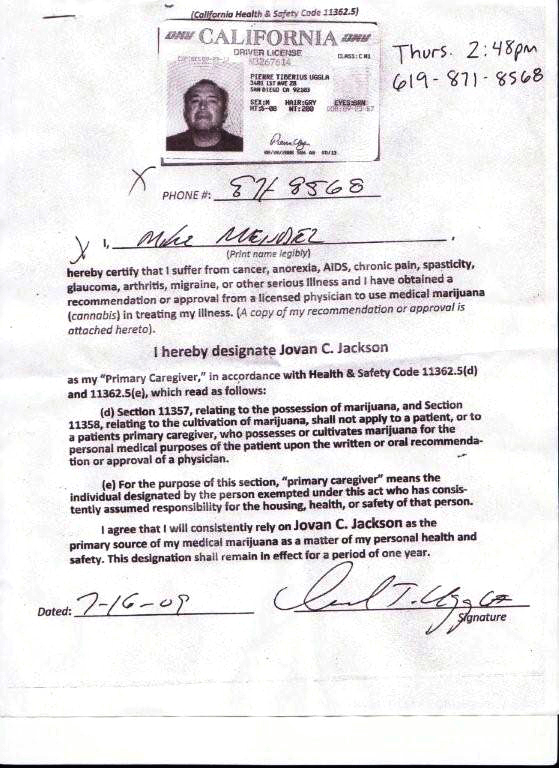 (California Health & Safety Code 11362.5)
DMV CALIFORNIA DMV
DRIVER LICENSE
CLASS: C M1
N3267614
PIERRE TIBERIUS UGGLA
3401 1ST AVE 28
SAN DIEGO CA 92103
SEX:M HAIR:GRY EYES:BRN
HT:5-08 WT:200
Thurs. 2:48pm
619-871-8568
X
PHONE #: 871 8568
X I, Mike MENDEZ .
(Print name legibly)
hereby certify that I suffer from cancer, anorexia, AIDS, chronic pain, spasticity,
glaucoma, arthritis, migraine, or other serious illness and I have obtained a
recommendation or approval from a licensed physician to use medical marijuana
(cannabis) in treating my illness. (A copy of my recommendation or approval is
attached hereto).
I hereby designate Jovan C. Jackson
as my "Primary Caregiver," in accordance with Health & Safety Code 11362.5(d)
and 11362.5(e), which read as follows:
(d) Section 11357, relating to the possession of marijuana, and Section
11358, relating to the cultivation of marijuana, shall not apply to a patient, or to
a patients primary caregiver, who possesses or cultivates marijuana for the
personal medical purposes of the patient upon the written or oral recommenda-
tion or approval of a physician.
(e) For the purpose of this section, "primary caregiver" means the
individual designated by the person exempted under this act who has consis-
tently assumed responsibility for the housing, health, or safety of that person.
I agree that I will consistently rely on Jovan C. Jackson as the
primary source of my medical marijuana as a matter of my personal health and
safety. This designation shall remain in effect for a period of one year.
Dated: 7-16-09
Signature